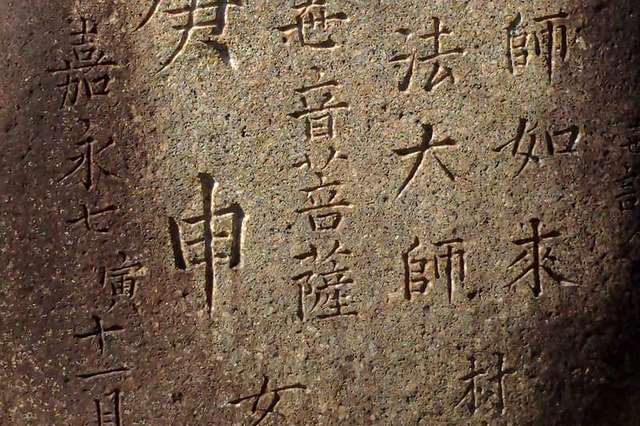 師如来
村
法大師
世音菩薩
女
庚申
嘉永七
寅
十一月